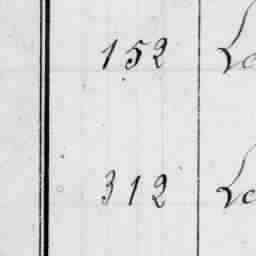 152
312